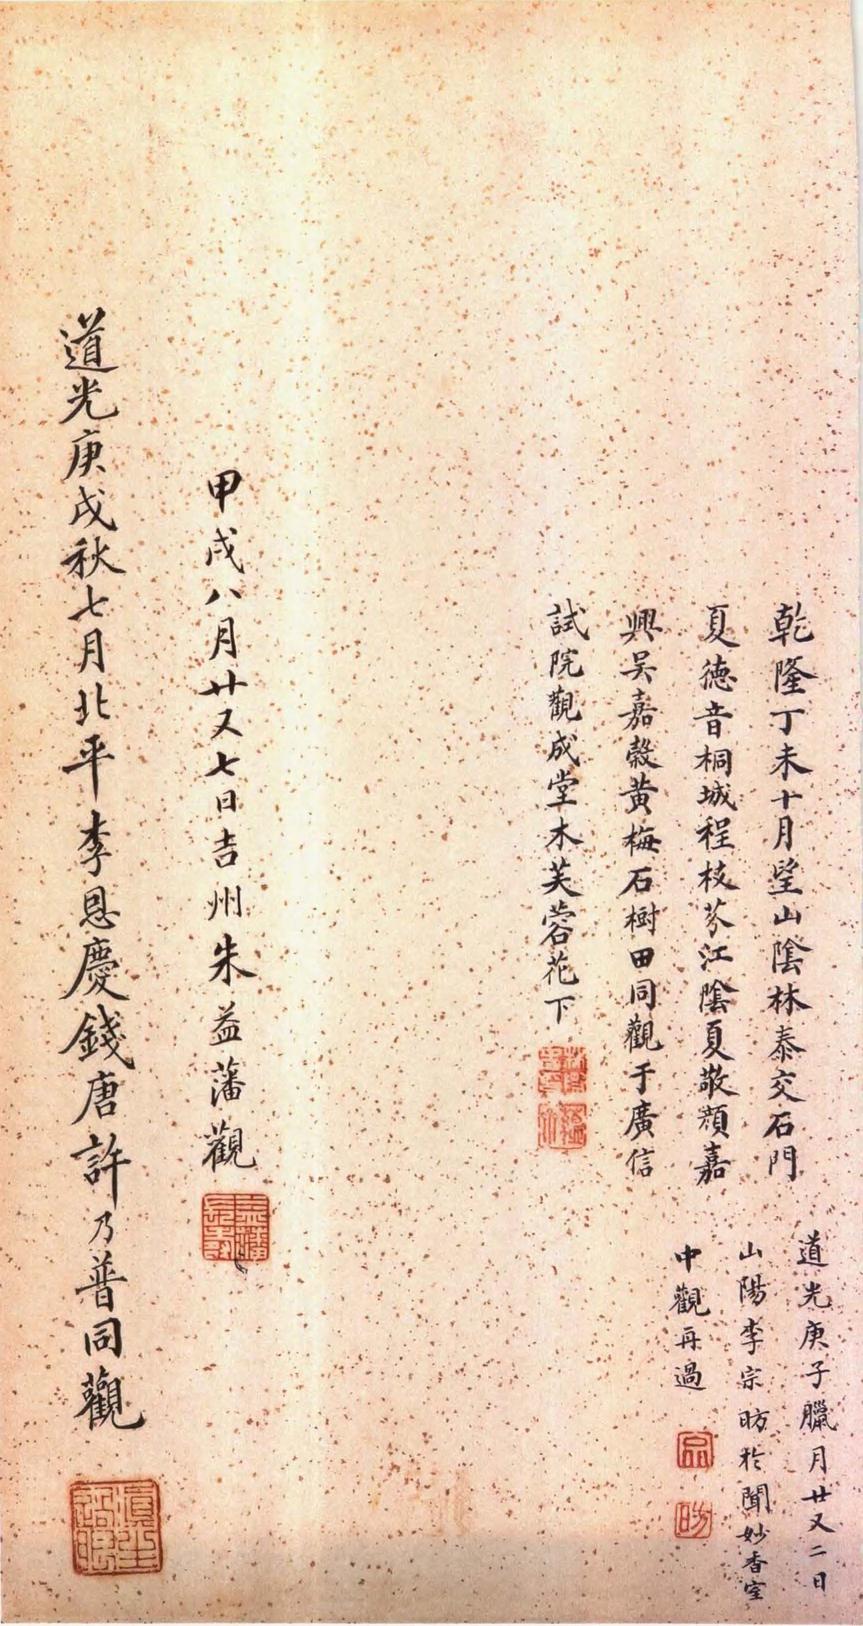 乾隆丁未十月望山陰林泰交石門
夏德音桐城程枝芬江陰夏敬顏嘉
興吳嘉穀黃梅石樹田同觀于廣信
試院觀成堂木芙蓉花下
道光庚子臘月廿又二日
山陽李宗昉於聞妙香室
中觀再過
宗
昉
甲戌八月廿又七日吉州朱益藩觀
道光庚戌秋七月北平李恩慶錢唐許乃普同觀